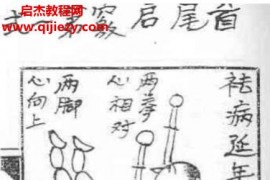 启杰教程网
www.qijiezy.com
首尾启
祛病延年
两拳心相对
两脚心向上